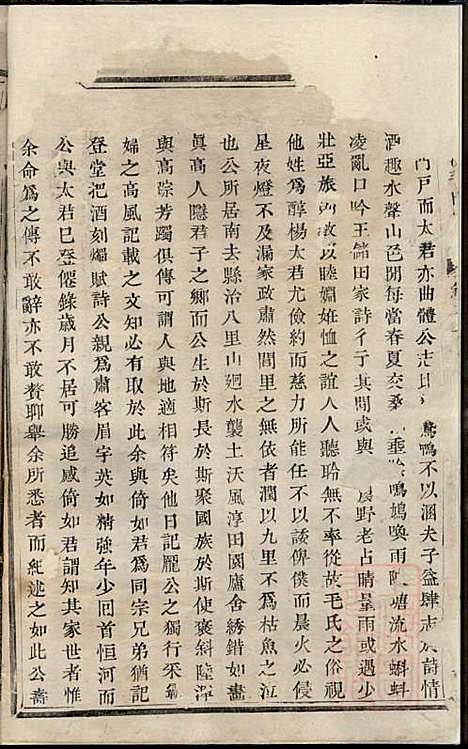 門戸而太君亦曲體公志日鵞鴨不以溷夫子益肆志於詩情
酒趣水聲山色閒每當春夏交桑垂鳴鳩喚雨陂塘流水蝌蚪
凌亂口吟王儲田家詩彳亍其間或與野老占晴量雨或過少
壯亞旅以睦婣姙恤之誼人人聽聆無不率從故毛氏之俗視
他姓為醇楊太君尤儉勤慈力所能任不以諉俾僕而晨火必侵
星夜燈不及漏家政肅然里之無依者潤以九里不為枯魚之泣
也公所居南去縣治八里山廻水襲土沃風淳田園廬舍綉錯如畫
眞高人隱君子之鄉而公生於斯長於斯聚國族於斯使褒斜陸渾
與高踪芳躅俱傳可謂人與地適相符矣他日記龎公之獨行采鮑
婦之高風記載之文知必有取於此余與倚如君為同宗兄弟猶記
登堂把酒刻燭賦詩公親為肅客眉宇英如精強年少回首恒河而
公與太君巳登僊錄歲月不居可勝追感倚如君謂知其家世者惟
余命為之傳不敢辭亦不敢贅聊舉余所悉者而紀述之如此公壽